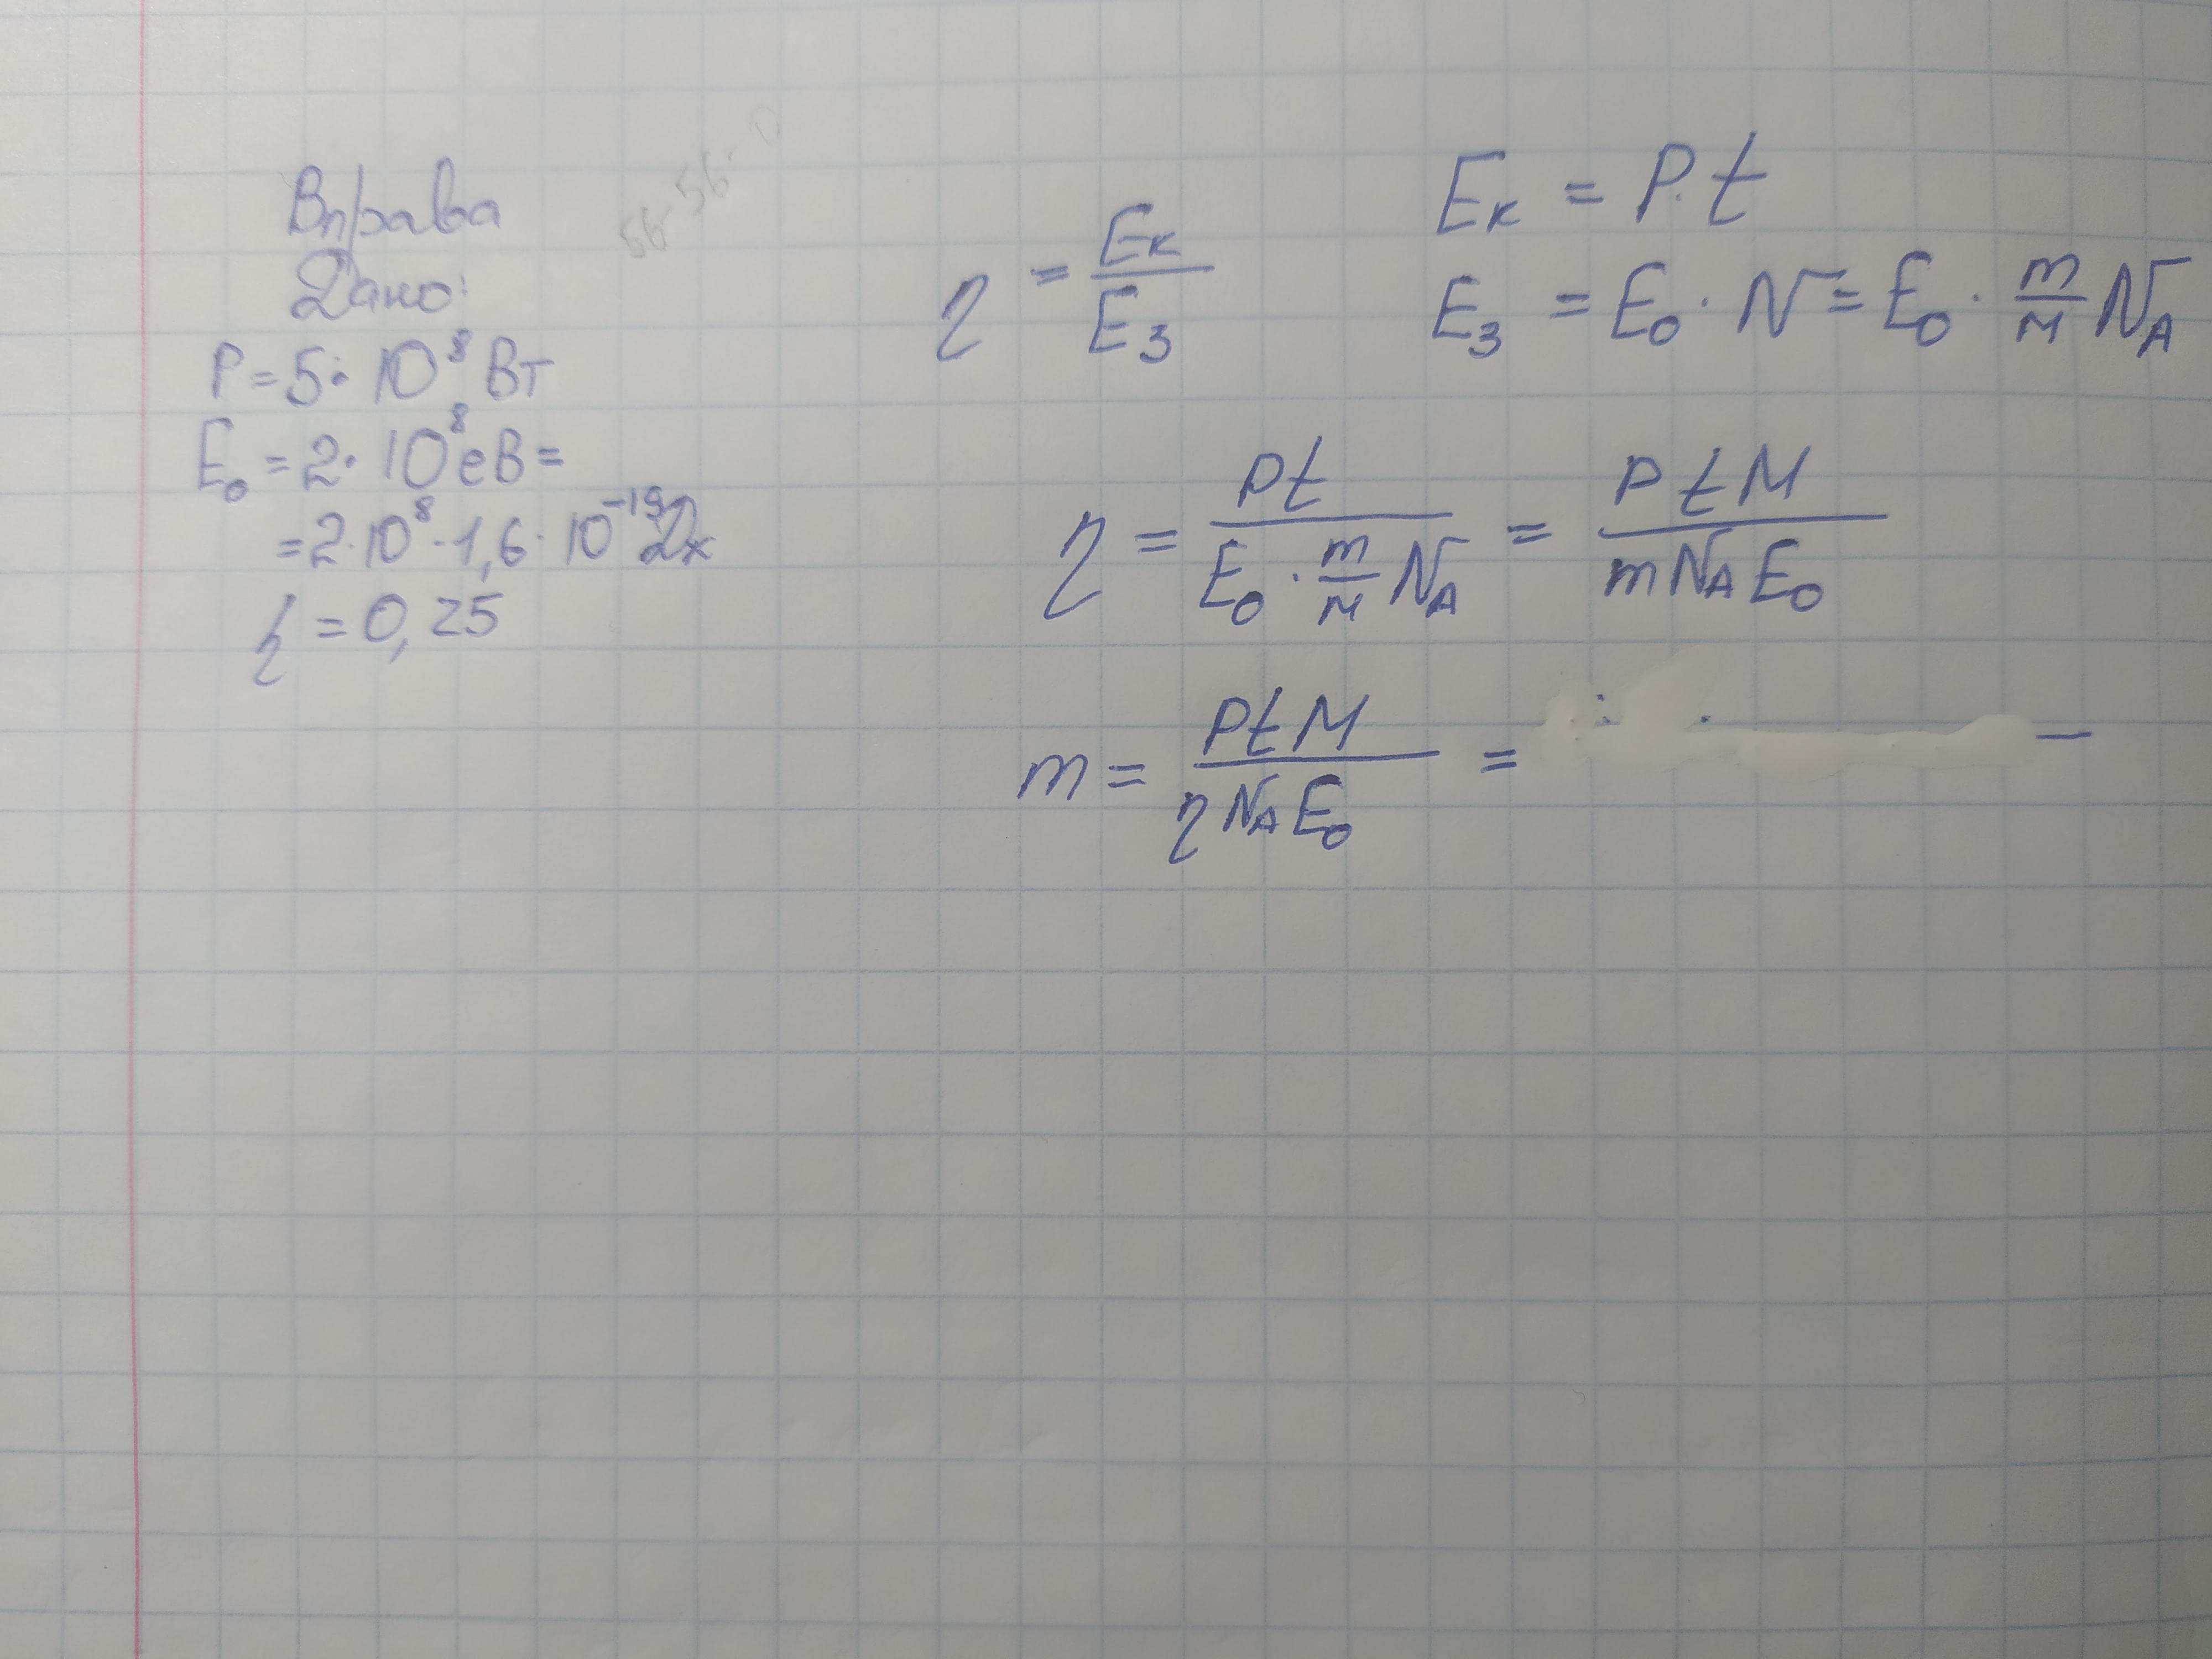 Вправа
Дано:
P = 5 · 10⁸ Вт
E₀ = 2 · 10⁸ еВ =
= 2 · 10⁸ · 1,6 · 10⁻¹⁹ Дж
η = 0,25
η = Eк / Eз
Eк = P · t
Eз = E₀ · N = E₀ · m/M Nᴀ
η = Pt / (E₀ · m/M Nᴀ) = PtM / (m Nᴀ E₀)
m = PtM / (η Nᴀ E₀) =